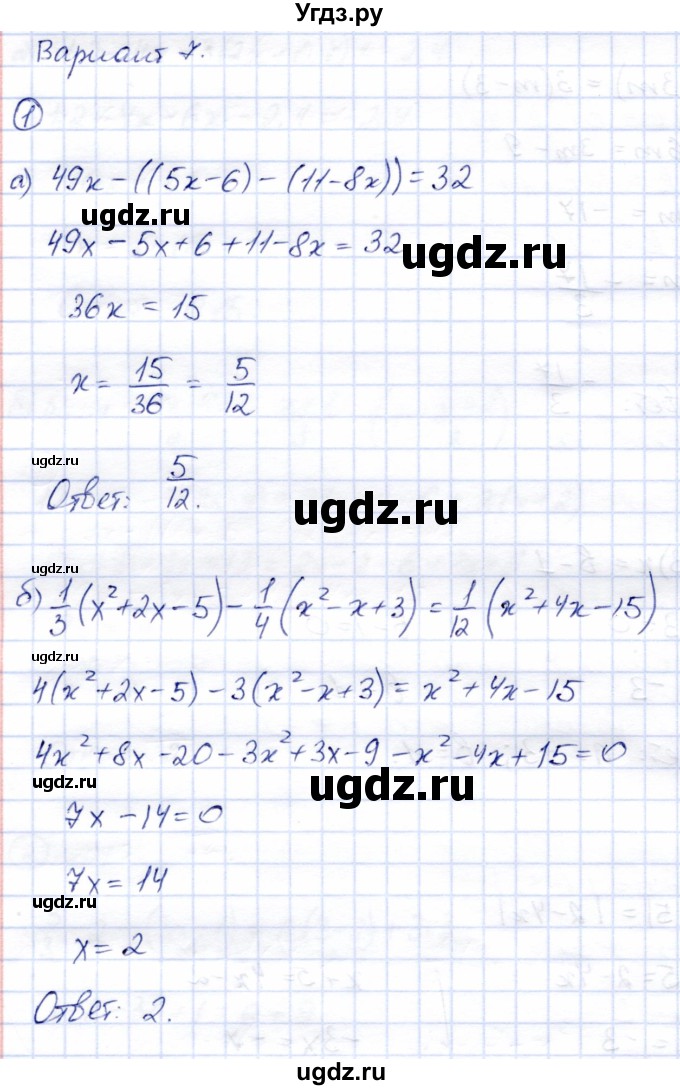 Угдз.ру
Вариант 7.
1
а) 49x – ((5x – 6) – (11 – 8x)) = 32
ugdz.ru
49x – 5x + 6 + 11 – 8x = 32
ugdz.ru
36x = 15
x = 15/36 = 5/12
ugdz.ru
Ответ: 5/12.
ugdz.ru
ugdz.ru
б) 1/3 (x² + 2x – 5) – 1/4 (x² – x + 3) = 1/12 (x² + 4x – 15)
ugdz.ru
4(x² + 2x – 5) – 3(x² – x + 3) = x² + 4x – 15
4x² + 8x – 20 – 3x² + 3x – 9 – x² – 4x + 15 = 0
ugdz.ru
ugdz.ru
7x – 14 = 0
7x = 14
ugdz.ru
x = 2
Ответ: 2.
ugdz.ru